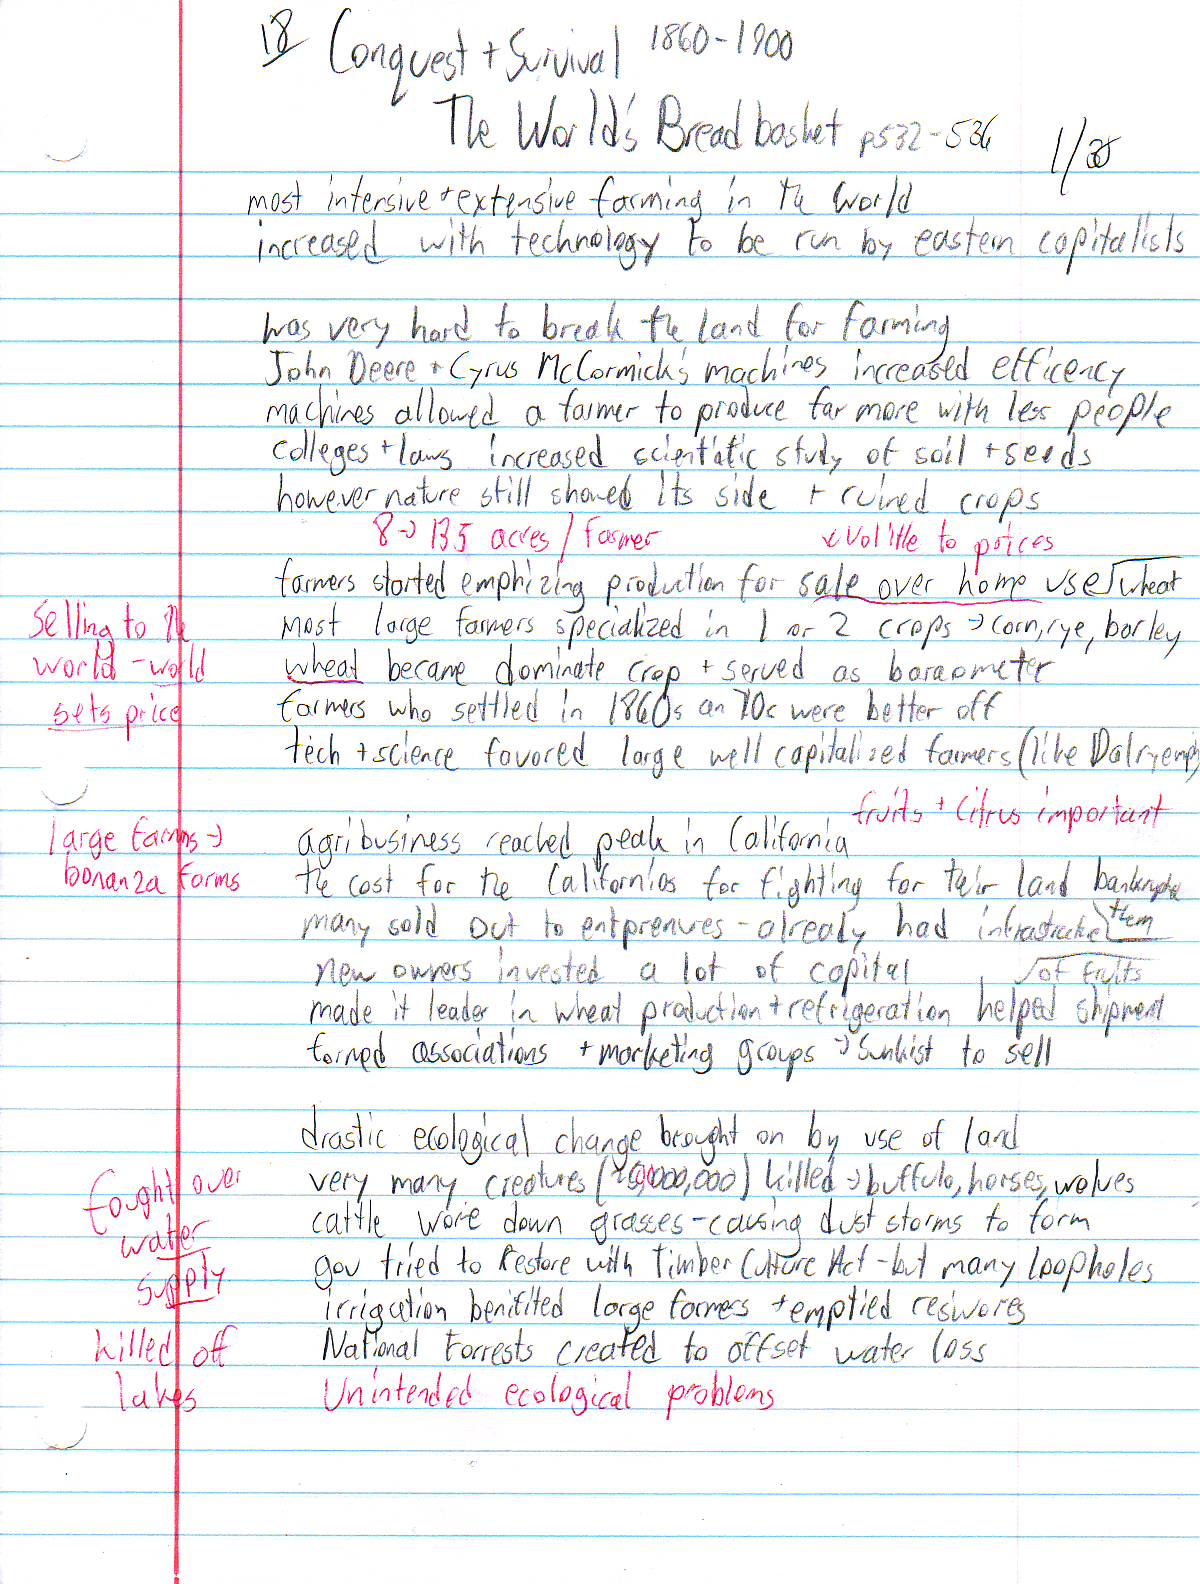 18 Conquest + Survival 1860-1900
The World's Breadbasket p532-536
1/
most intensive + extensive farming in the World
increased with technology to be run by eastern capitalists
was very hard to break the land for farming
John Deere + Cyrus McCormick's machines increased efficency
machines allowed a farmer to produce far more with less people
colleges + laws increased scientific study of soil + seeds
however nature still showed its side + ruined crops
8 → 135 acres / Farmer
volitle to prices
farmers started emphizing production for sale over home use wheat
Selling to the
world - world
sets price
most large farmers specialized in 1 or 2 crops → corn, rye, barley
wheat became dominate crop + served as baraometer
farmers who settled in 1860s an 70s were better off
tech + science favored large well capitalized farmers (like Dalrymple)
fruits + citrus important
large farms →
bonanza farms
agribusiness reached peak in California
the cost for the Californios for fighting for their land bankrupted
them
many sold out to entprenures - already had infrastructure
of fruits
new owners invested a lot of capital
made it leader in wheat production + refrigeration helped shipment
formed associations + marketing groups → Sunkist to sell
drastic ecological change brought on by use of land
very many creatures killed → buffulo, horses, wolves
fought over
water
supply
cattle wore down grasses - causing dust storms to form
gov tried to Restore with Timber Culture Act - but many loopholes
irrigation benifited large farmers + emptied resivores
killed off
lakes
National Forrests created to offset water loss
Unintended ecological problems